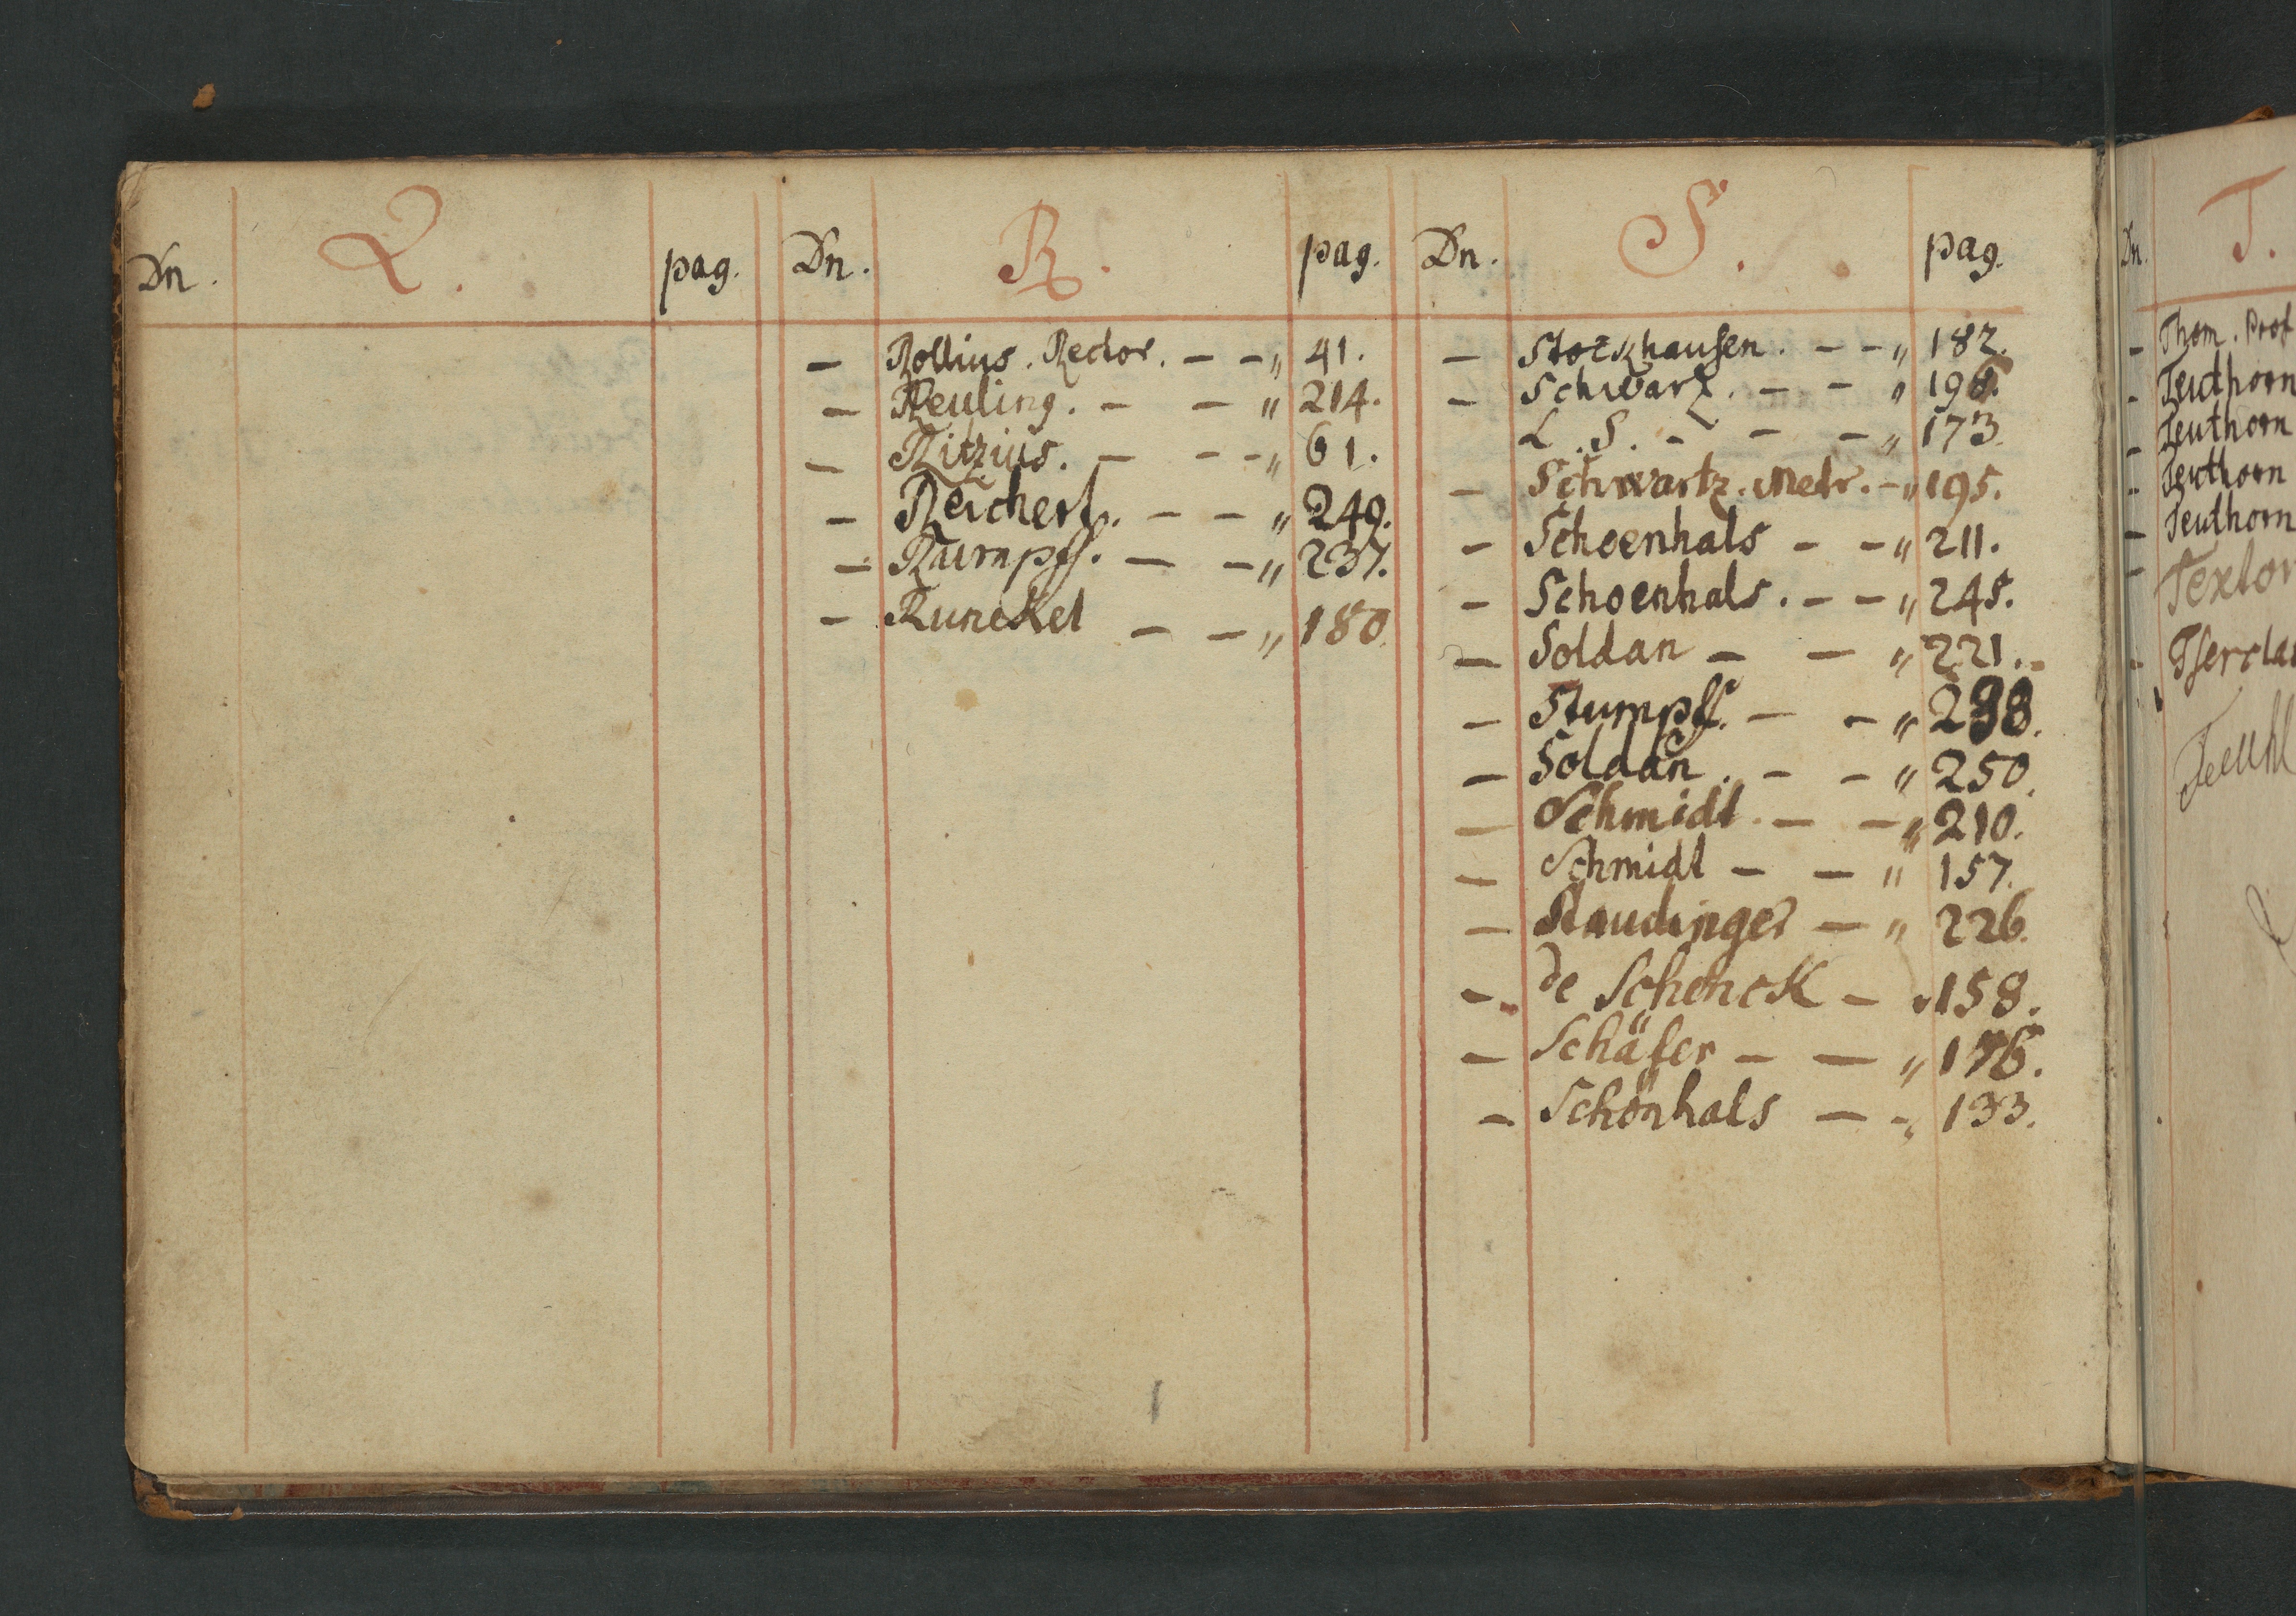 Dn. Q. pag.
Dn. R. pag.
— Rollius. Rector. — — „ 41.
— Reuling. — — „ 214.
— Ritzius. — — „ 61.
— Reichert. — — „ 249.
— Rumpff. — — „ 237.
— Runckel — — „ 180.
Dn. S. pag.
— Stockhausen. — — „ 182.
— Schwarz. — — „
L. S. — — — „ 173.
— Schwartz. Medr. — „ 195.
— Schoenhals — — „ 211.
— Schoenhals. — — „ 245.
— Soldan — — „ 221.
— Stumpff. — — „ 238.
— Soldan. — — „ 250.
— Schmidt. — — „ 210.
— Schmidt — — „ 157.
— Staudinger — „ 226.
— de Schenck — „ 158.
— Schäfer — — „ 176.
— Schönhals — — „ 133.
Dn. T.
— Thom. Prof
— Teuthorn
— Teuthorn
— Teuthorn
— Teuthorn
— Textor
— Tserclas